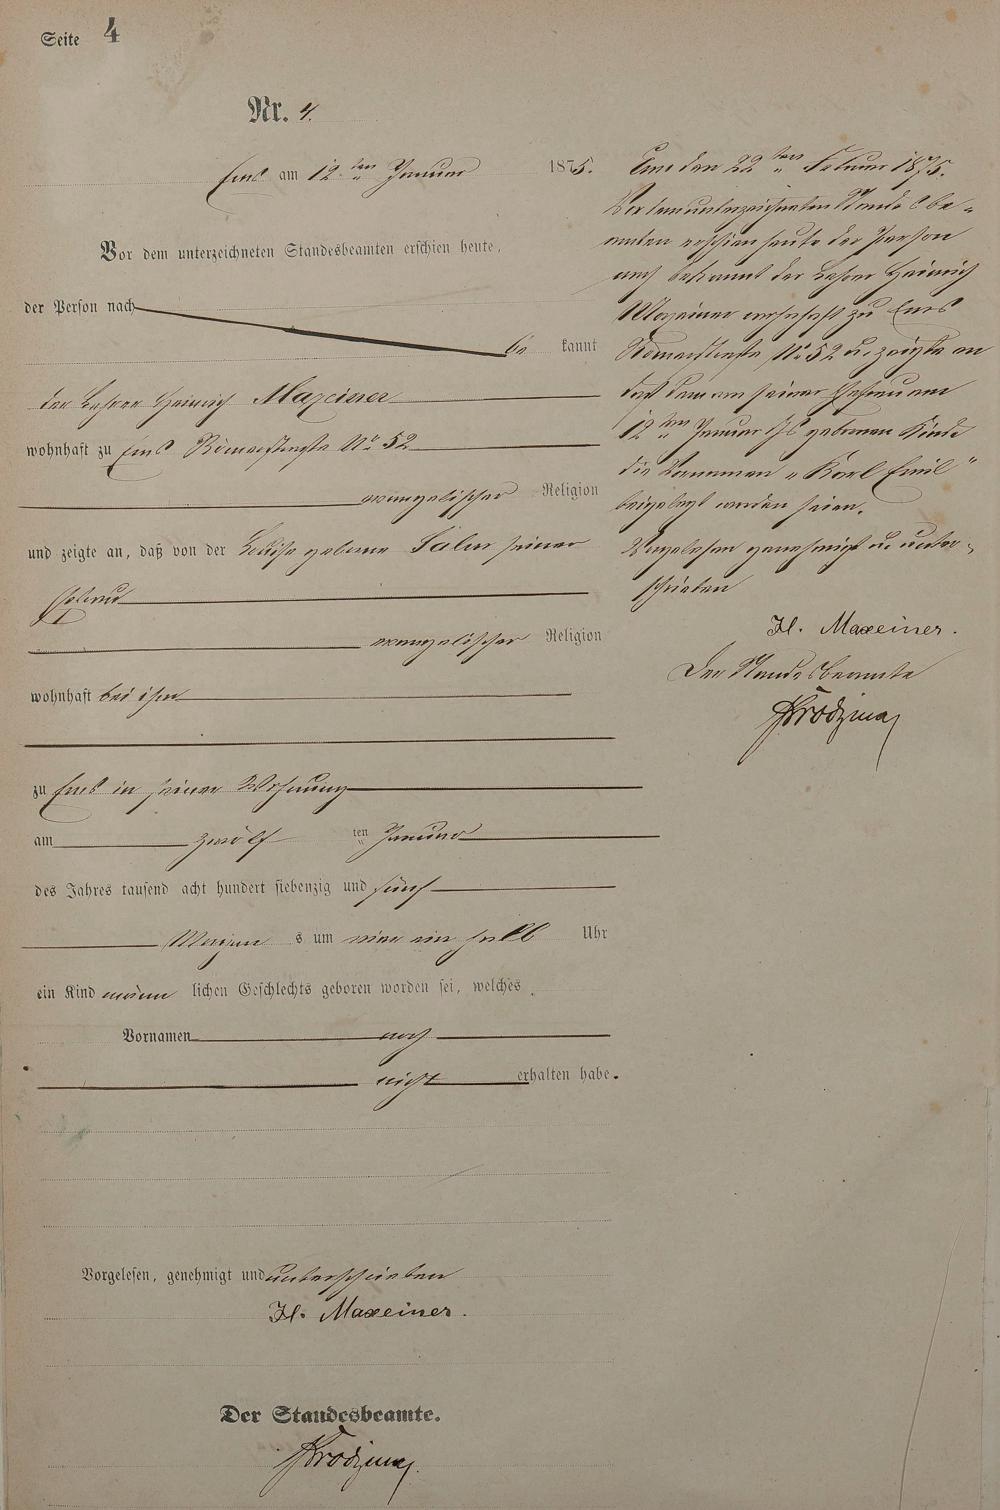 Seite 4
Nr. 4.
Ems am 12ten Januar 1875.
Vor dem unterzeichneten Standesbeamten erschien heute,
der Person nach
be kannt
der Lehrer Heinrich Maxeiner
wohnhaft zu Ems Römerstraße No 52
evangelischer Religion
und zeigte an, daß von der Louise geborne seiner
Ehefrau
evangelischer Religion
wohnhaft bei ihm
zu Ems in seiner Wohnung
am zwölf ten Januar
des Jahres tausend acht hundert siebenzig und fünf
Morgen s um ein halb Uhr
ein Kind männ lichen Geschlechts geboren worden sei, welches
Vornamen noch
nicht erhalten habe.
Vorgelesen, genehmigt und unterschrieben
H. Maxeiner.
Der Standesbeamte.
Ems den 22ten Februar 1875.
Vor dem unterzeichneten Standesbe-
amten erschien heute der Person
nach bekannt der Lehrer Heinrich
Maxeiner wohnhaft zu Ems
Römerstraße No 52 u. zeigte an
daß dem von seiner Ehefrau am
12ten Januar gebornen Kinde
die Vornamen „Karl Emil"
beigelegt worden seien.
Vorgelesen genehmigt u. unter-
schrieben
H. Maxeiner.
Der Standesbeamte